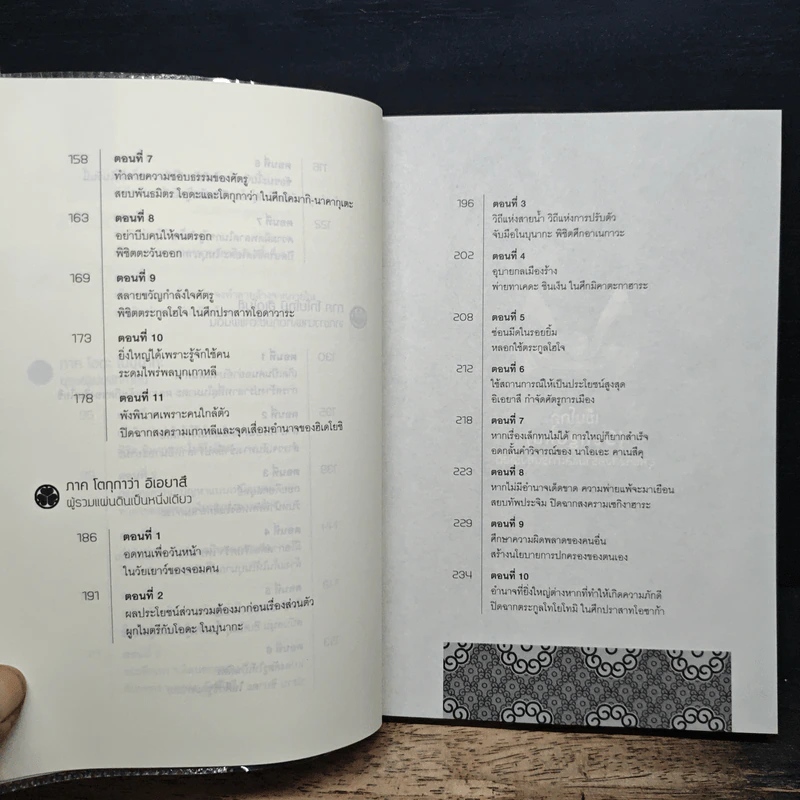 158 ตอนที่ 7
ทำลายความชอบธรรมของศัตรู
สยบพันธมิตร โอดะและโตกุกาว่า ในศึกโคมากิ-นางากุเตะ
163 ตอนที่ 8
อย่าบีบคนให้จนตรอก
พิชิตตะวันออก
169 ตอนที่ 9
สลายขวัญกำลังใจศัตรู
พิชิตตระกูลโฮโจ ในศึกปราสาทโอดาวาระ
173 ตอนที่ 10
ยิ่งใหญ่ได้เพราะรู้จักใช้คน
ระดมไพร่พลบุกเกาหลี
178 ตอนที่ 11
พังพินาศเพราะคนใกล้ตัว
ปิดฉากสงครามเกาหลีและจุดเสื่อมอำนาจของฮิเดโยชิ
ภาค โตกุกาว่า อิเอยาสึ
ผู้รวมแผ่นดินเป็นหนึ่งเดียว
186 ตอนที่ 1
อดทนเพื่อวันหน้า
ในวัยเยาว์ของจอมคน
191 ตอนที่ 2
ผลประโยชน์ส่วนรวมต้องมาก่อนเรื่องส่วนตัว
ผูกไมตรีกับโอดะ โนบุนากะ
196 ตอนที่ 3
วิถีแห่งสายน้ำ วิถีแห่งการปรับตัว
จับมือโนบุนากะ พิชิตศึกอาเนกาวะ
202 ตอนที่ 4
อุบายกลเมืองร้าง
พ่ายทาเคดะ ชินเง็น ในศึกมิคาตะกาฮาระ
208 ตอนที่ 5
ซ่อนมีดในรอยยิ้ม
หลอกใช้ตระกูลโฮโจ
212 ตอนที่ 6
ใช้สถานการณ์ให้เป็นประโยชน์สูงสุด
อิเอยาสึ กำจัดศัตรูการเมือง
218 ตอนที่ 7
หากเรื่องเล็กทนไม่ได้ การใหญ่ก็ยากสำเร็จ
อดกลั้นคำวิจารณ์ของ นาโอเอะ คาเนสึคุ
223 ตอนที่ 8
หากไม่มีอำนาจเด็ดขาด ความพ่ายแพ้จะมาเยือน
สยบทัพประจิม ปิดฉากสงครามเซกิงาฮาระ
229 ตอนที่ 9
ศึกษาความผิดพลาดของคนอื่น
สร้างนโยบายการปกครองของตนเอง
234 ตอนที่ 10
อำนาจที่ยิ่งใหญ่ต่างหากที่ทำให้เกิดความภักดี
ปิดฉากตระกูลโทโยโทมิ ในศึกปราสาทโอซาก้า